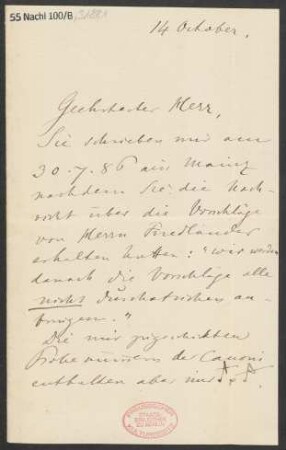 55 Nachl 100/B
14 October.
Geehrtester Herr,
Sie schrieben mir am
30.7.86 aus Mainz
nachdem Sie die Nach-
richt über die Vorschläge
von Herrn Friedländer
erhalten hatten: "wir werden
danach die Vorschläge alle
nicht durchstrichen an-
bringen."
Die mir zugeschickten
Probenummern der Canoni
enthalten aber nur